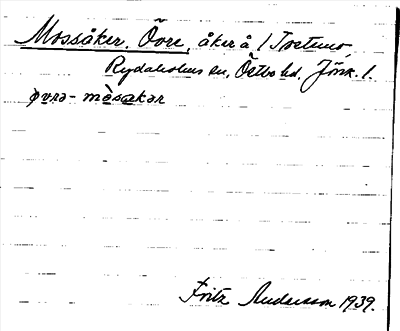 Mossåker, Övre, åker å 1 Tvetuna,
Rydaholms sn, Östbo hd. Jönk. l.
øvrə - mòsakər
Fritz Andersson 1939.